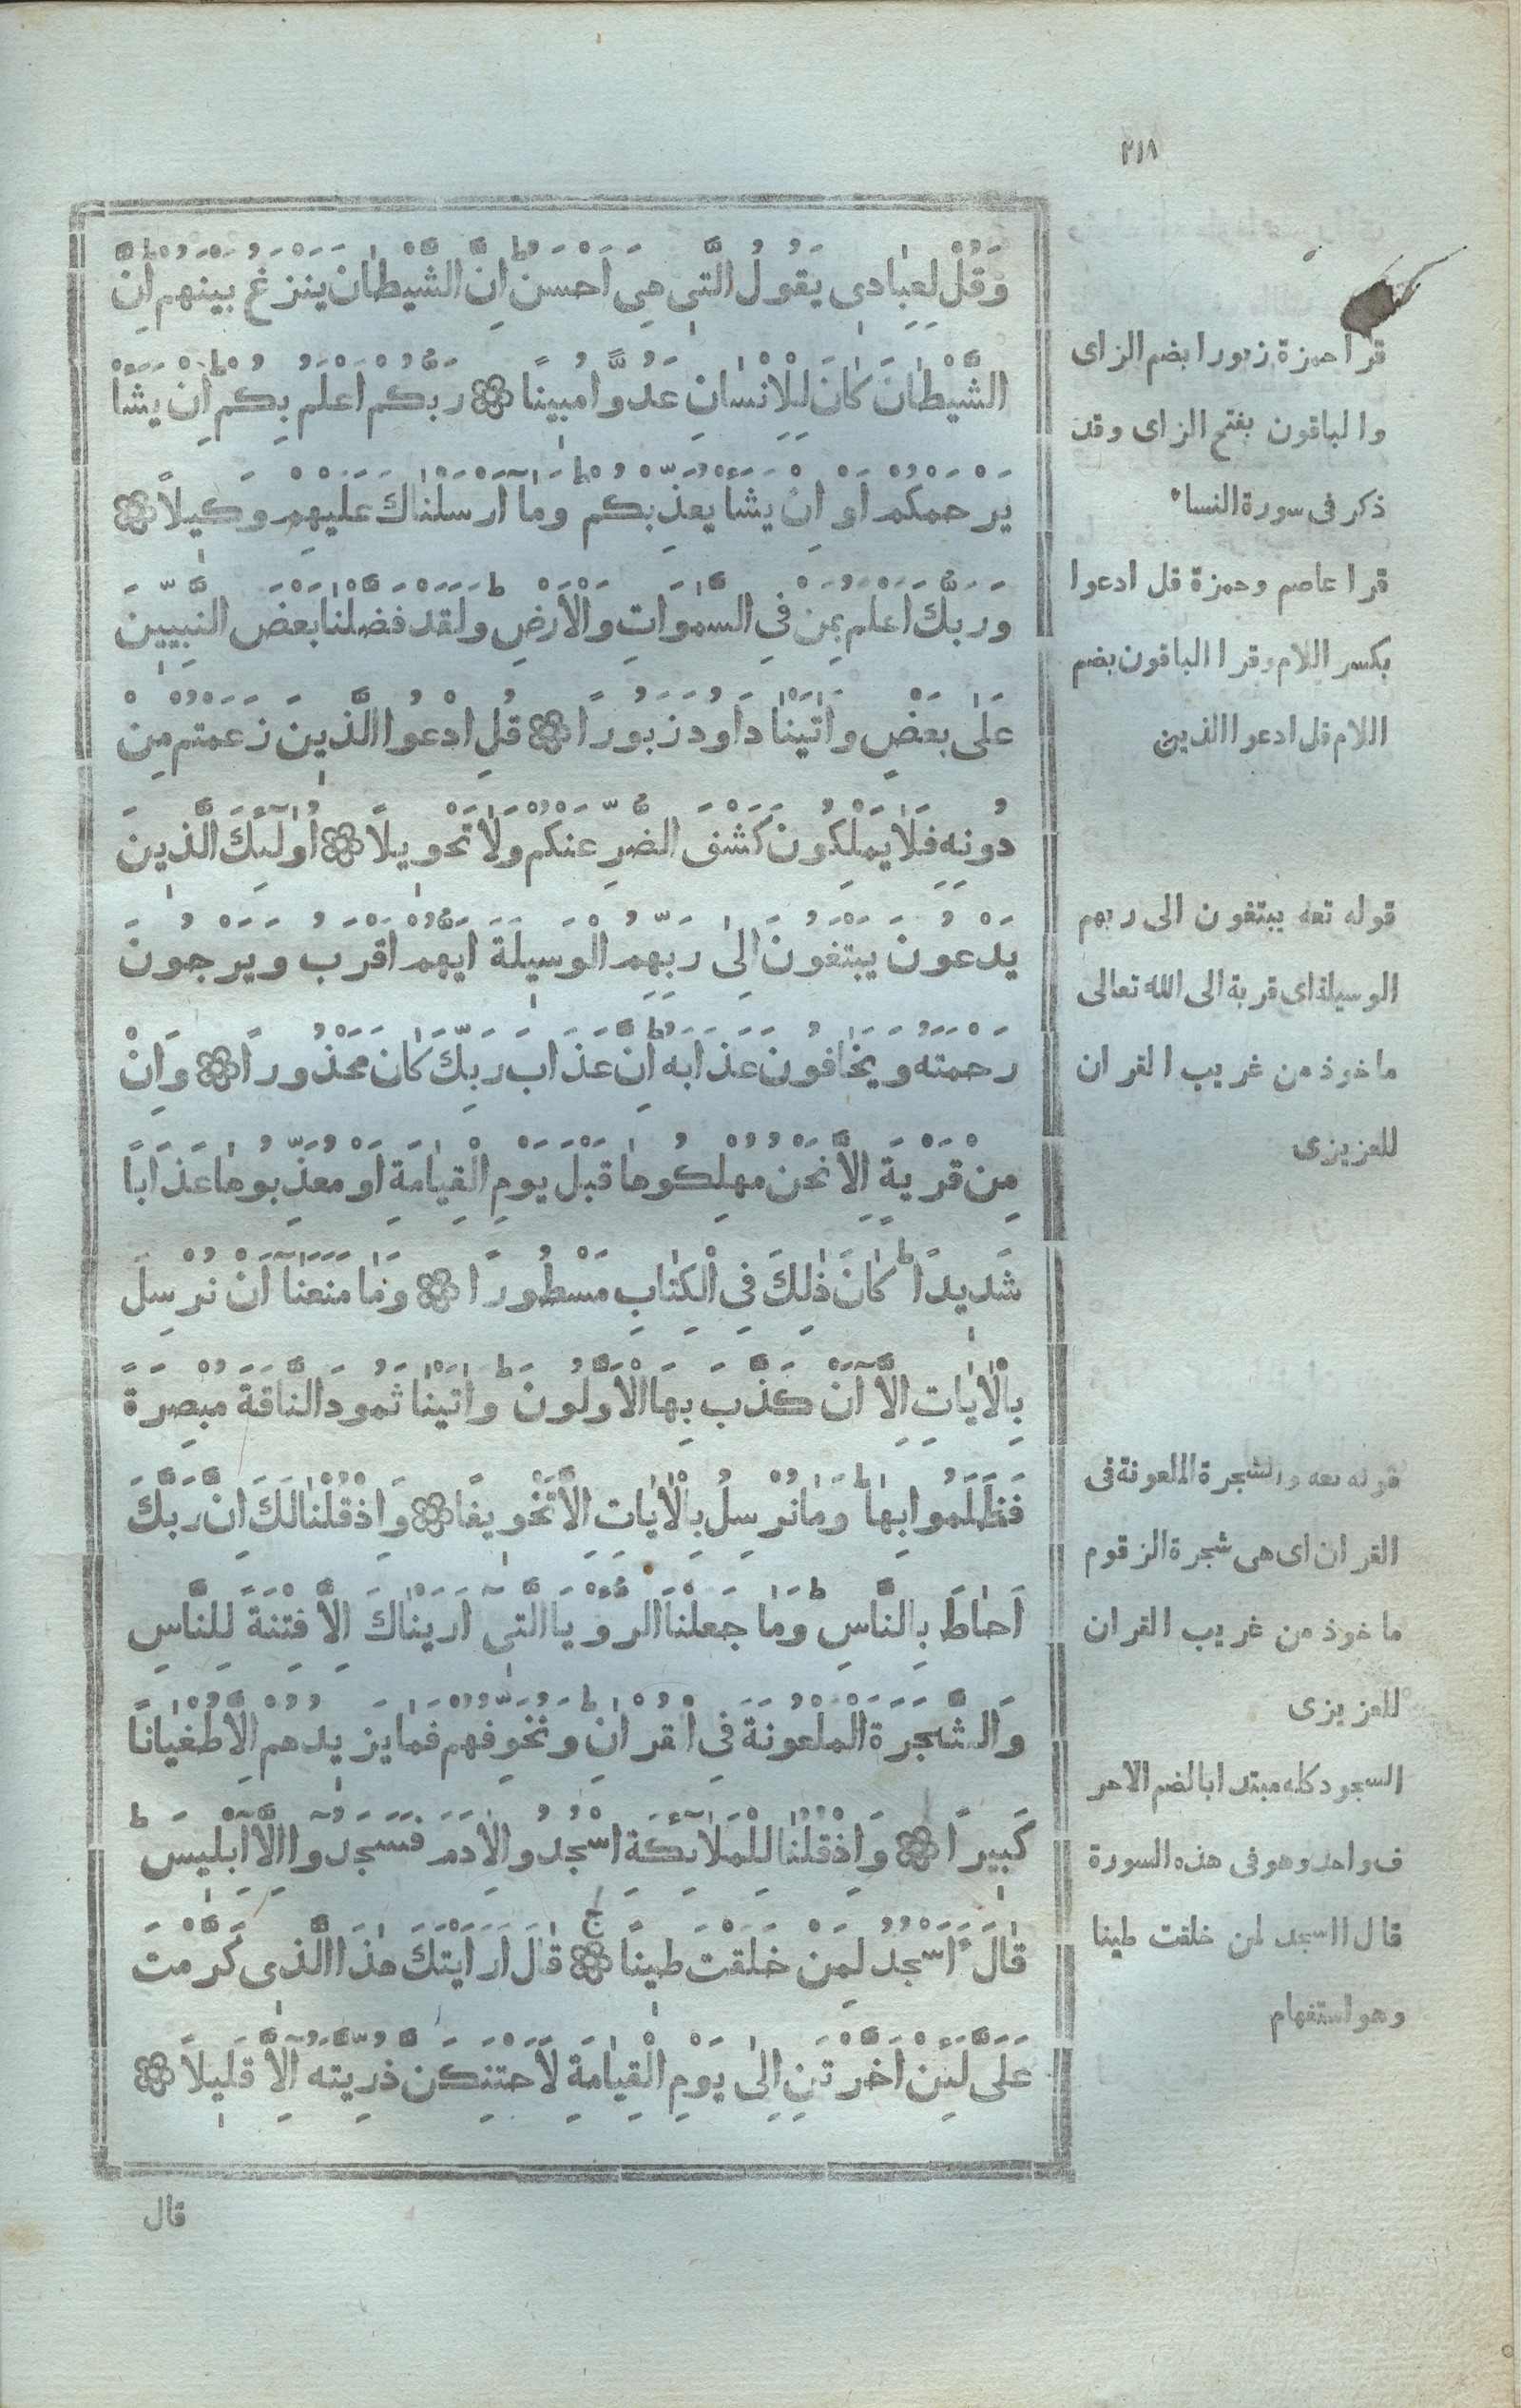 ٢١٨
وَقُلْ لِعِبَادِى يَقُولُ الَّتِى هِىَ اَحْسَنُ ط اِنَّ الشَّيْطَانَ يَنْزَغُ بَيْنَهُمْ ط اِنَّ
الشَّيْطَانَ كَانَ لِلْاِنْسَانِ عَدُوًّا مُبِينًا ۞ رَبُّكُمْ اَعْلَمُ بِكُمْ ط اِنْ يَشَأْ
يَرْحَمْكُمْ اَوْ اِنْ يَشَأْ يُعَذِّبْكُمْ ط وَمَآ اَرْسَلْنَاكَ عَلَيْهِمْ وَكِيلًا ۞
وَرَبُّكَ اَعْلَمُ بِمَنْ فِى السَّمٰوَاتِ وَالْاَرْضِ ط وَلَقَدْ فَضَّلْنَا بَعْضَ النَّبِيِّينَ
عَلٰى بَعْضٍ وَاٰتَيْنَا دَاوُدَ زَبُورًا ۞ قُلِ ادْعُوا الَّذِينَ زَعَمْتُمْ مِنْ
دُونِهِ فَلَا يَمْلِكُونَ كَشْفَ الضُّرِّ عَنْكُمْ وَلَا تَحْوِيلًا ۞ اُولٰٓئِكَ الَّذِينَ
يَدْعُونَ يَبْتَغُونَ اِلٰى رَبِّهِمُ الْوَسِيلَةَ اَيُّهُمْ اَقْرَبُ وَيَرْجُونَ
رَحْمَتَهُ وَيَخَافُونَ عَذَابَهُ ط اِنَّ عَذَابَ رَبِّكَ كَانَ مَحْذُورًا ۞ وَاِنْ
مِنْ قَرْيَةٍ اِلَّا نَحْنُ مُهْلِكُوهَا قَبْلَ يَوْمِ الْقِيَامَةِ اَوْ مُعَذِّبُوهَا عَذَابًا
شَدِيدًا ط كَانَ ذٰلِكَ فِى الْكِتَابِ مَسْطُورًا ۞ وَمَا مَنَعَنَآ اَنْ نُرْسِلَ
بِالْاٰيَاتِ اِلَّآ اَنْ كَذَّبَ بِهَا الْاَوَّلُونَ ط وَاٰتَيْنَا ثَمُودَ النَّاقَةَ مُبْصِرَةً
فَظَلَمُوا بِهَا ط وَمَا نُرْسِلُ بِالْاٰيَاتِ اِلَّا تَخْوِيفًا ۞ وَاِذْ قُلْنَا لَكَ اِنَّ رَبَّكَ
اَحَاطَ بِالنَّاسِ ط وَمَا جَعَلْنَا الرُّؤْيَا الَّتِىٓ اَرَيْنَاكَ اِلَّا فِتْنَةً لِلنَّاسِ
وَالشَّجَرَةَ الْمَلْعُونَةَ فِى الْقُرْاٰنِ ط وَنُخَوِّفُهُمْ فَمَا يَزِيدُهُمْ اِلَّا طُغْيَانًا
كَبِيرًا ۞ وَاِذْ قُلْنَا لِلْمَلٰٓئِكَةِ اسْجُدُوا لِاٰدَمَ فَسَجَدُوٓا اِلَّآ اِبْلِيسَ ط
قَالَ ءَاَسْجُدُ لِمَنْ خَلَقْتَ طِينًا ج ۞ قَالَ اَرَاَيْتَكَ هٰذَا الَّذِى كَرَّمْتَ
عَلَىَّ لَئِنْ اَخَّرْتَنِ اِلٰى يَوْمِ الْقِيَامَةِ لَاَحْتَنِكَنَّ ذُرِّيَّتَهُ اِلَّا قَلِيلًا ۞
قال
قرا حمزة زبورا بضم الزاى
والباقون بفتح الزاى وقد
ذكر فى سورة النساء
قرا عاصم وحمزة قل ادعوا
بكسر اللام وقرا الباقون بضم
اللام قل ادعوا الذين
قوله تعه يبتغون الى ربهم
الوسيلة اى قربة الى الله تعالى
ماخوذ من غريب القران
للعزيزى
قوله تعه والشجرة الملعونة فى
القران اى هى شجرة الزقوم
ماخوذ من غريب القران
للعزيزى
السجود كله مبتدا بالضم الا حر
ف واحد وهو فى هذه السورة
قال ااسجد لمن خلقت طينا
وهو استفهام